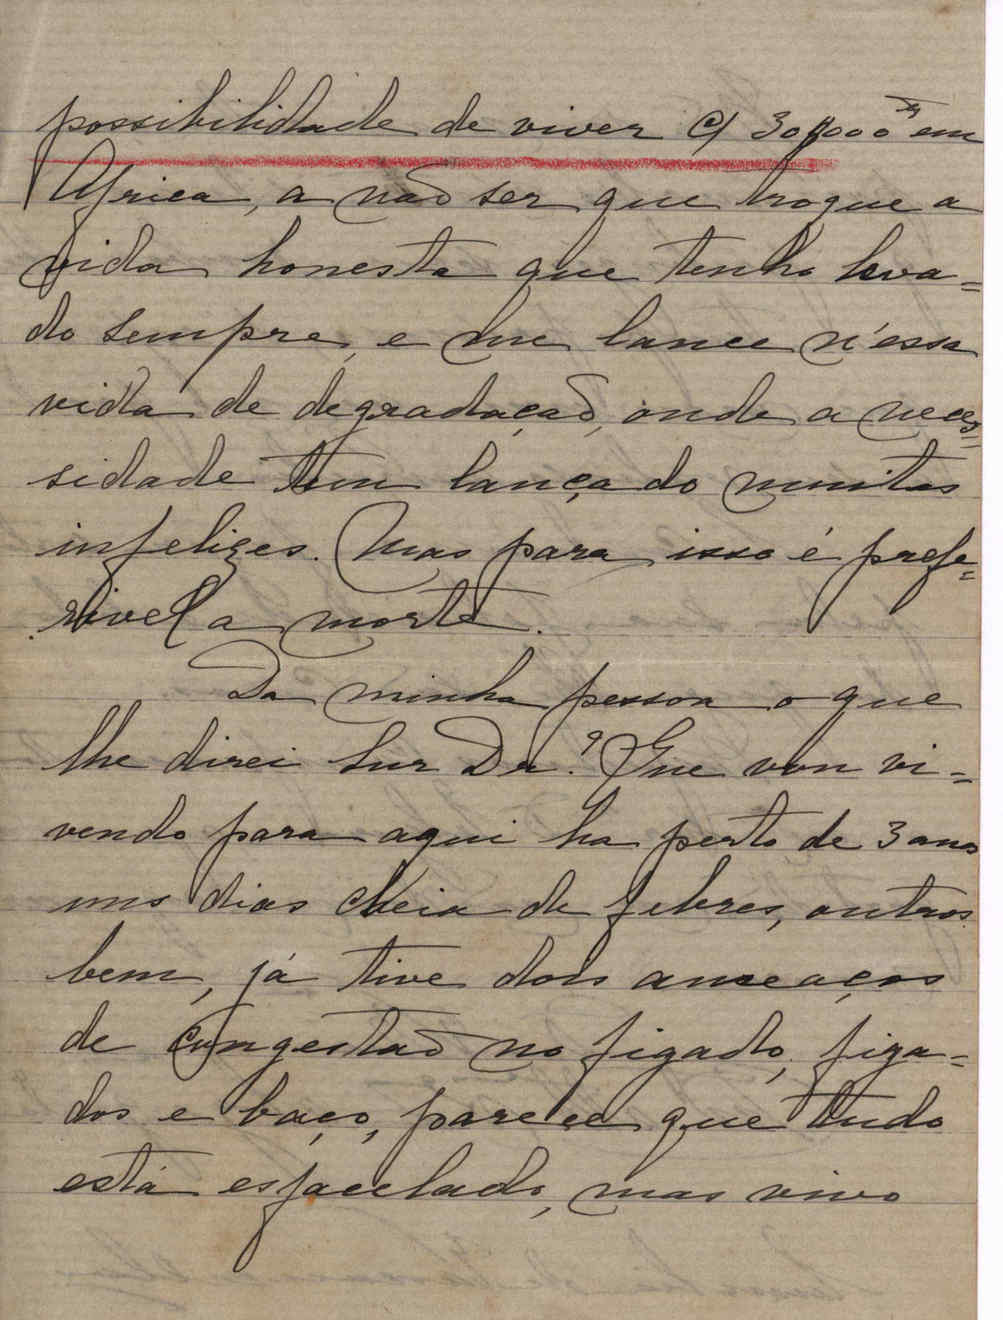 possibilidade de viver c/ 30$000 rs em
Africa, a não ser que troque a
vida honesta que tenho leva=
do sempre, e me lance n'essa
vida de degradação, onde a neces=
sidade tem lançado muitas
infelizes. Mas para isso é prefe=
rivel a morte.
Da minha pessoa o que
lhe direi Snr Dr.? Que vou vi=
vendo para aqui ha perto de 3 anos
uns dias cheia de febres, outros
bem, já tive dois ameaços
de congestão no figado, figa=
dos e baço, parece que tudo
está esfacelado, mas vivo